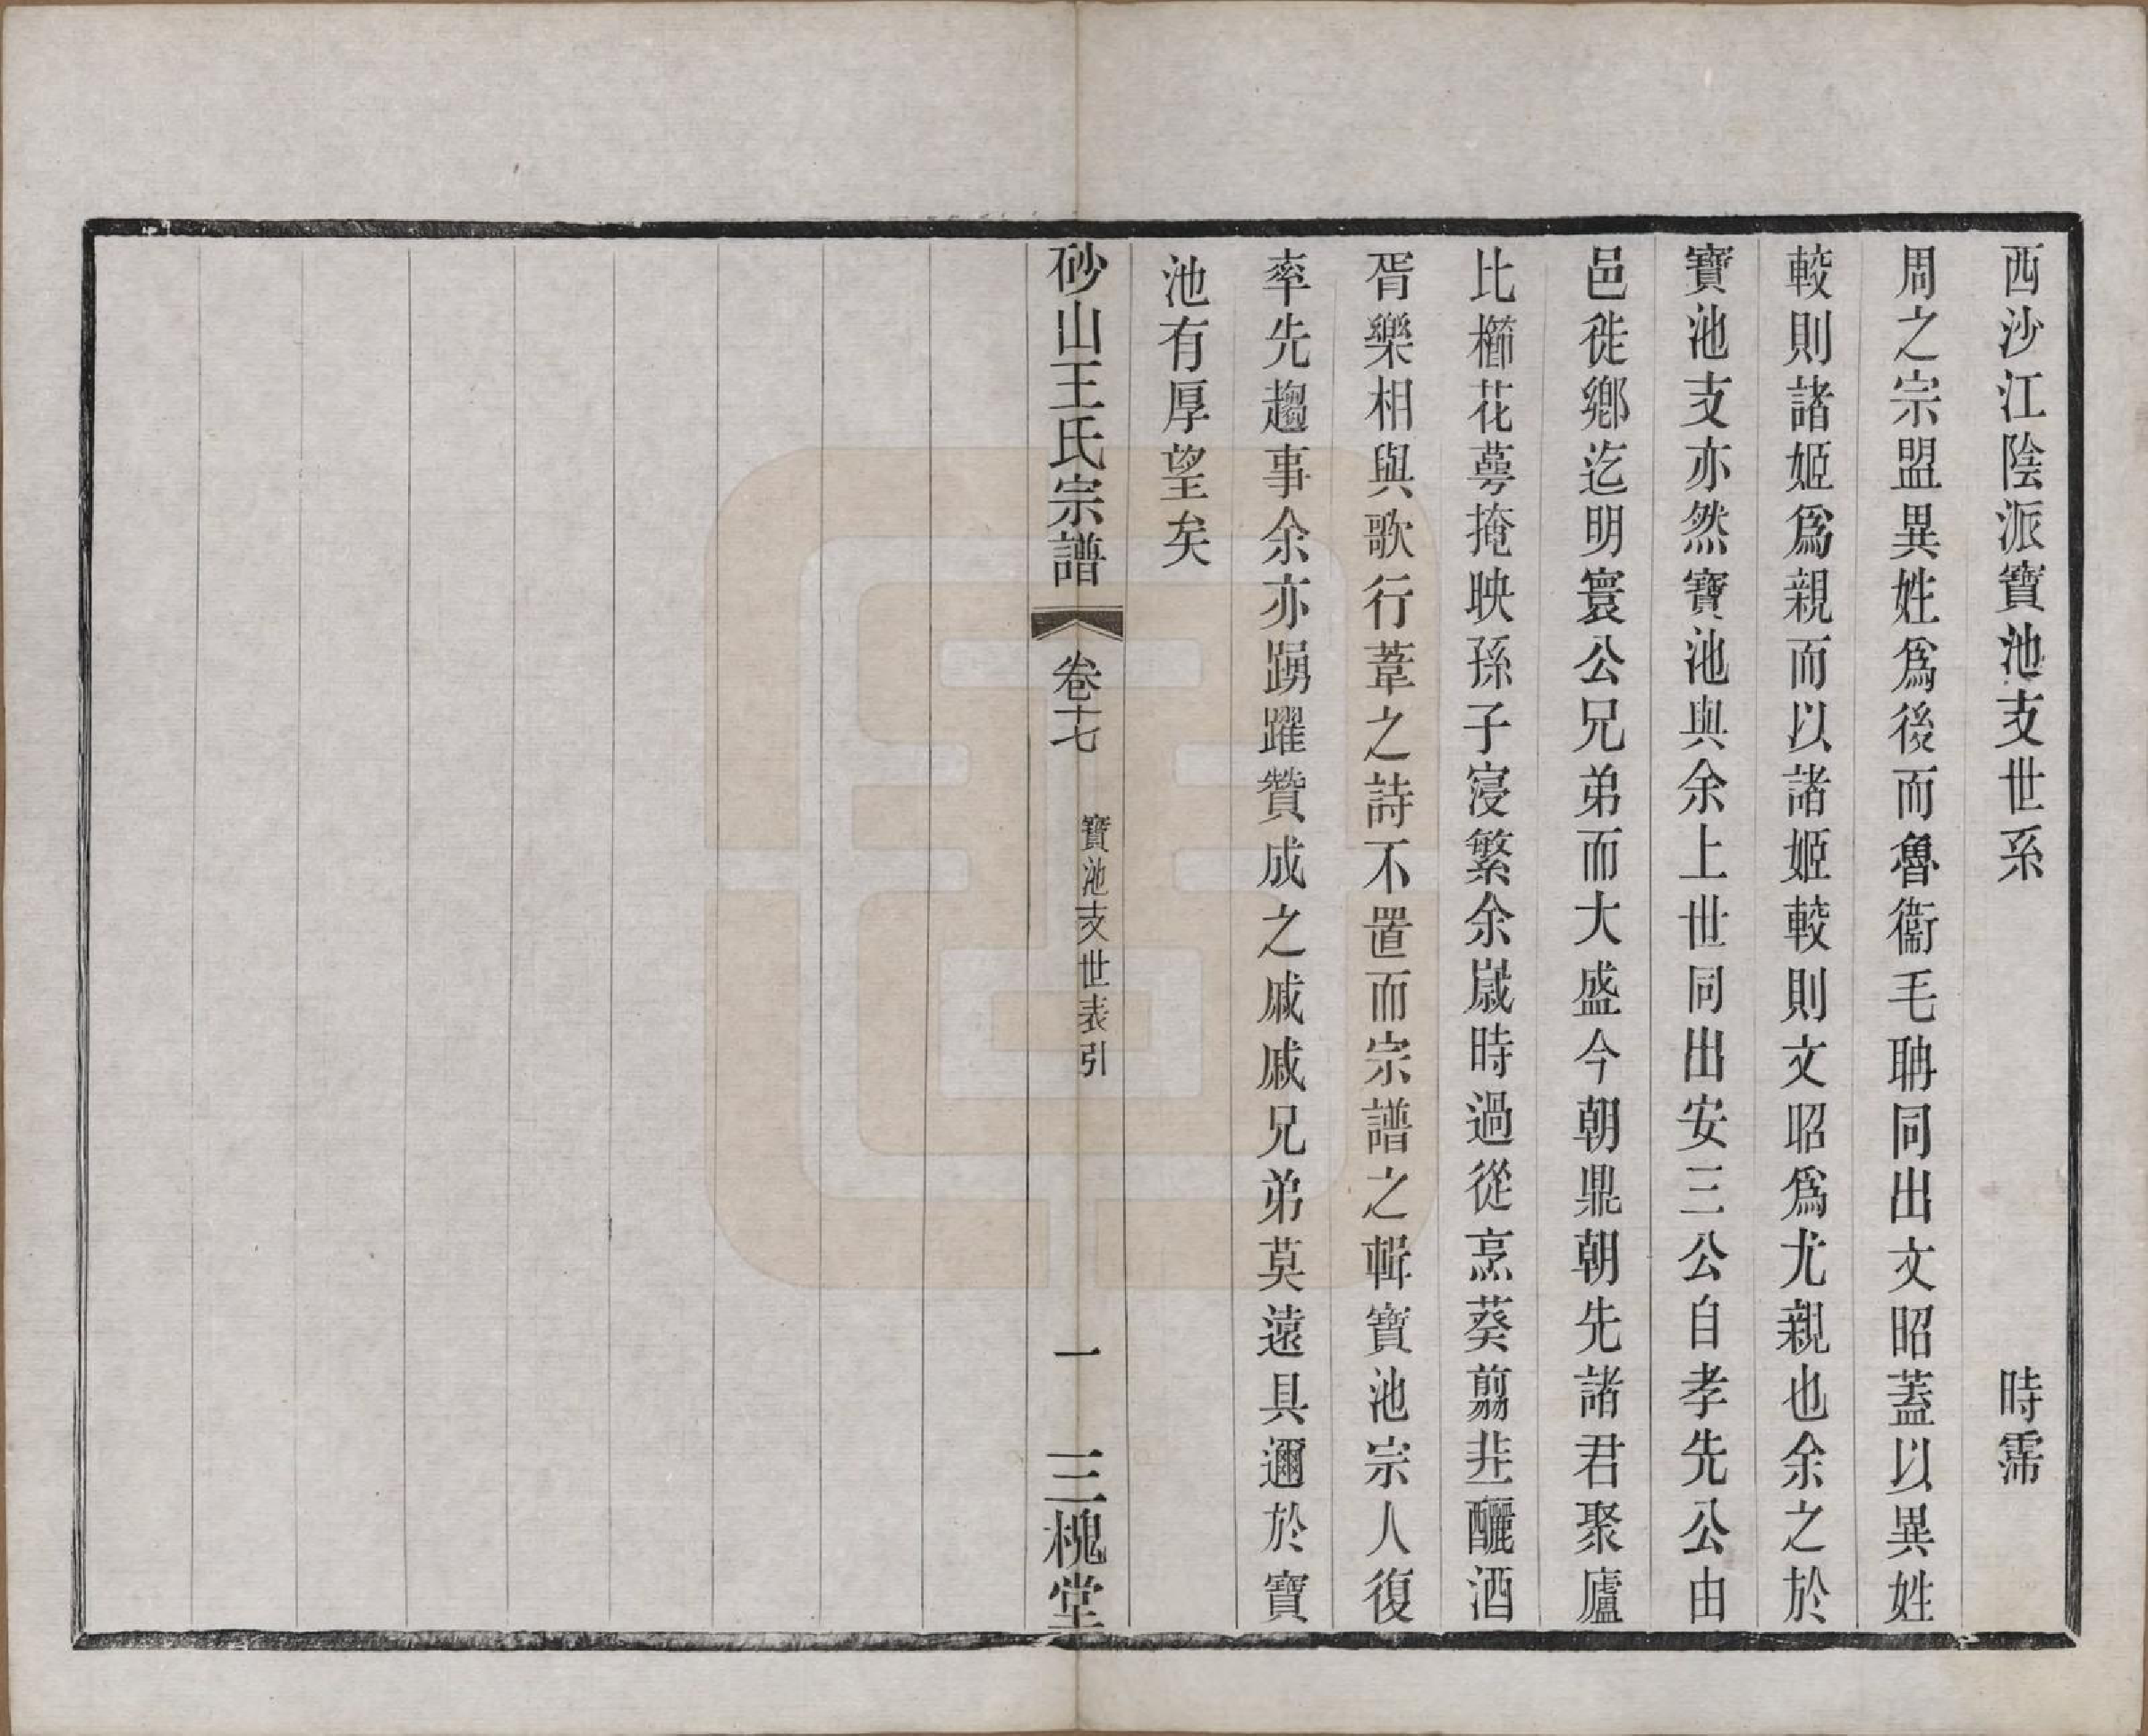 西沙江陰派寶池支世系　時霈
周之宗盟異姓爲後而魯衞毛聃同出文昭蓋以異姓
較則諸姬爲親而以諸姬較則文昭爲尤親也余之於
寶池支亦然寶池與余上世同出安三公自孝先公由
邑徙鄉迄明寰公兄弟而大盛今朝鼎朝先諸君聚廬
比櫛花萼掩映孫子寖繁余嵗時過從烹葵翦韭釃酒
胥樂相與歌行葦之詩不置而宗譜之輯寶池宗人復
率先趨事余亦踴躍贊成之戚戚兄弟莫遠具邇於寶
池有厚望矣
砂山王氏宗譜　卷十七　寶池支世表引　一　三槐堂